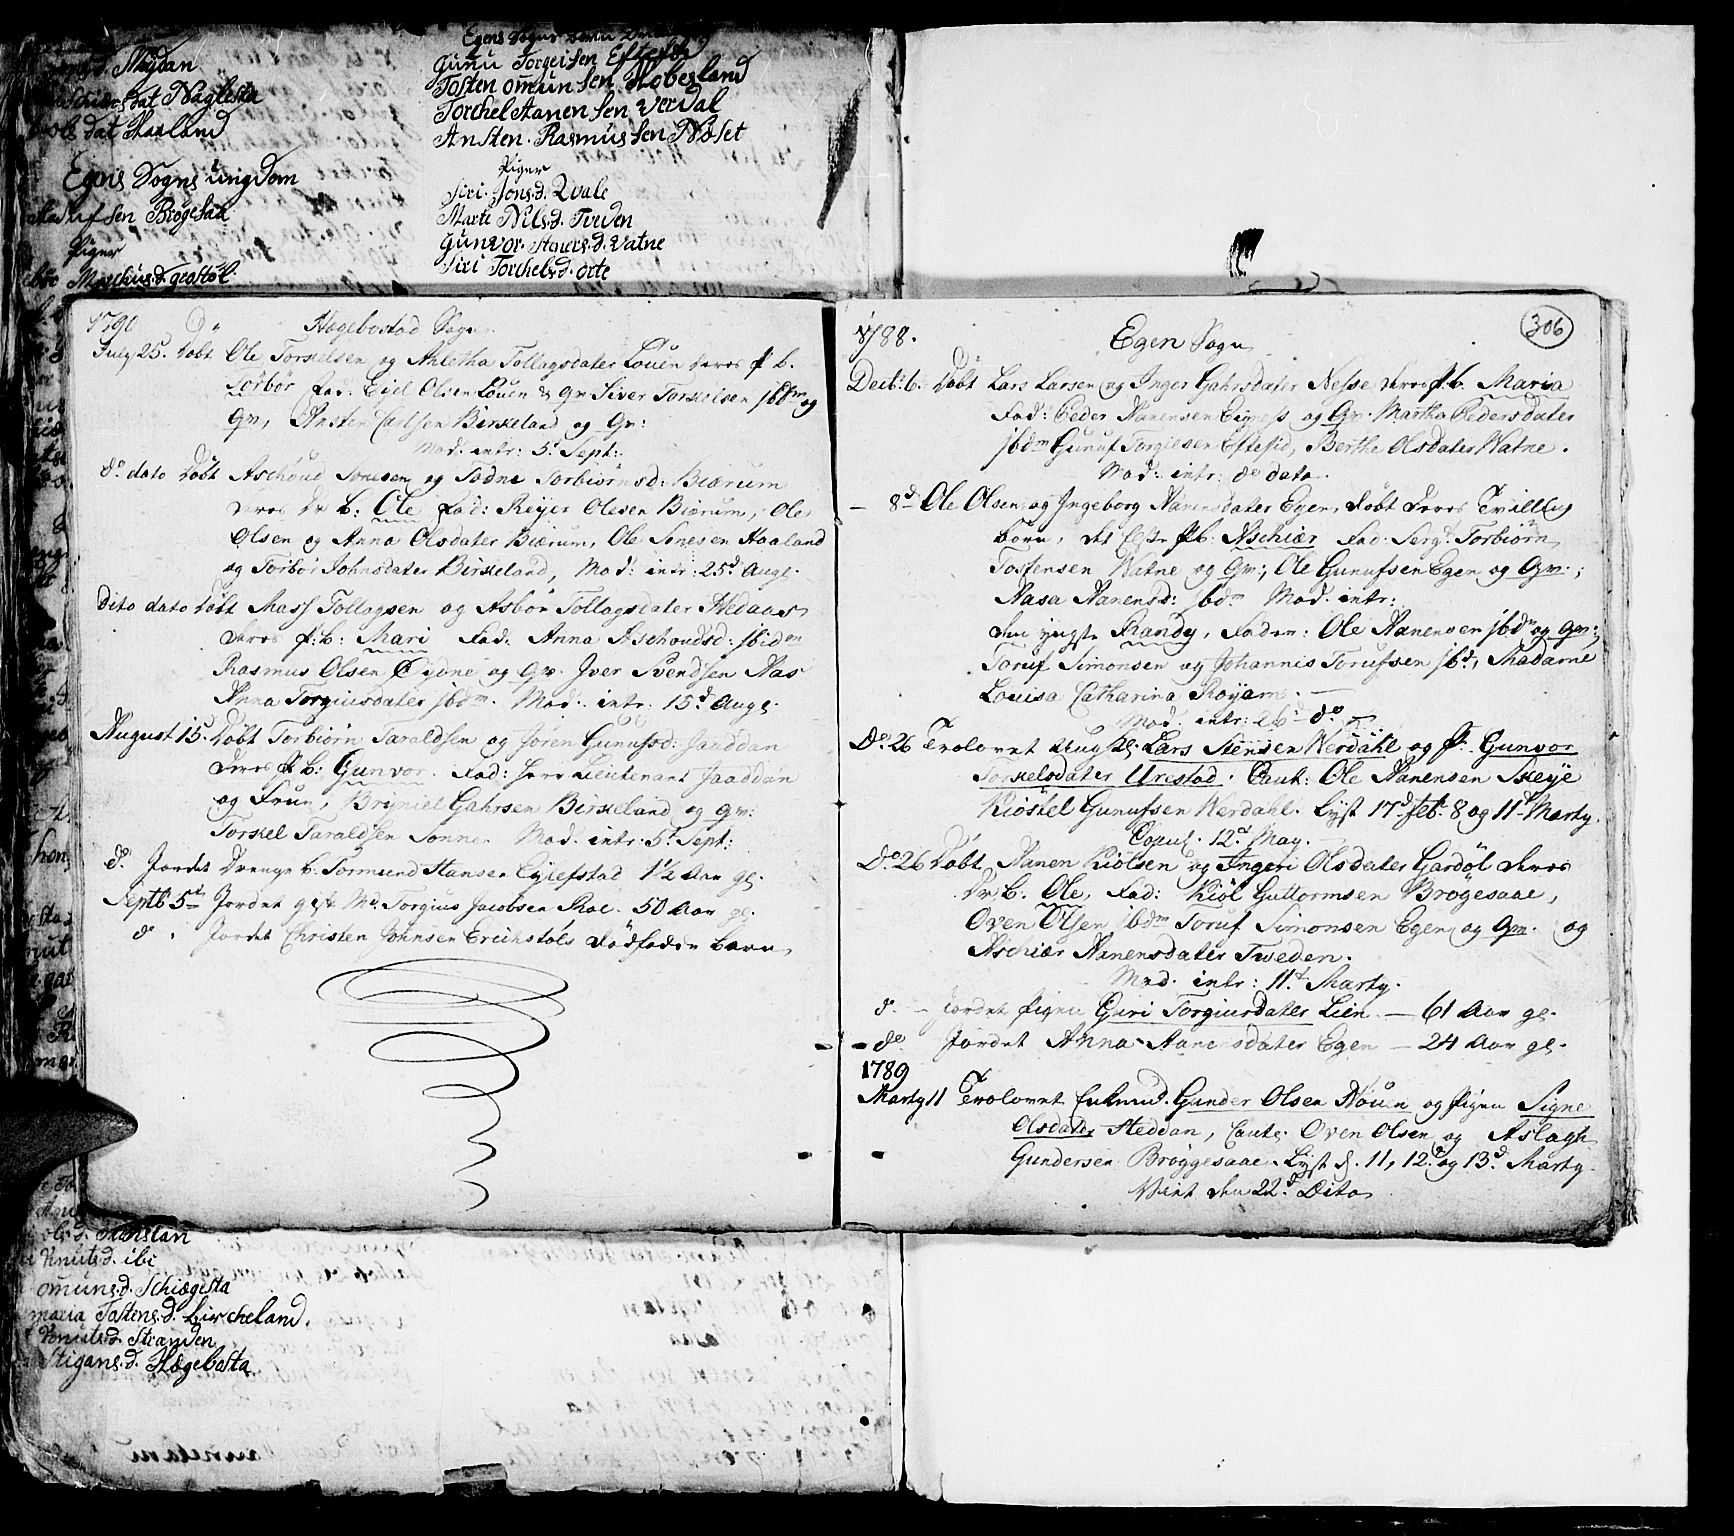 Møydan
dat Naglesta
ols dat Haaland
Egens Sogns ungdom
sen Brøgesaa
Piger
Maschius.d. geostøl
Egens Sogns
Gunu Torgeisen Eftestø
Tosten omunsen Skobesland
Torchel Stanensen Verdal
Ansten Rasmussen Noset
Piger
Siri Jons.d. Qvale
Marte Nils.d. Tveden
Gunvor Steners.d. Vatne
Siri Torchels.d. orte
1790 Do Hægebostad Sogn
July 25. Døbt Ole Torkelsen og Ahletha Tollagsdater Louen deres p. b.
Torbør fad: Egil Olsen Louen & qv Siver Torkelsen ibdm og
Qv, Ansten Carlsen Birkeland og Qv:
Mod. intr: 5t Sept:
do dato Døbt Aschoud Sonesen og Todne Torbiørnsd: Biærum
deres dr b: Ole Fad: Reyer Olesen Biærum, Ole
Olsen og Anna Olsdater Biærum, Ole Sonesen Haaland
og Torbør Johnsdater Birkeland, Mod: intr: 25d Augs.
Dito dato Døbt Mass Tollagsen og Asbør Tollagsdater Hedaas
deres p: b: Mari Fad. Anna Aschoudsd: ibidm
Rasmus Olsen Eydne og Qv. Iver Svendsen Aas
Anna Torgiusdater ibdm. Mod: intr: 15d Augs.
August 15. Døbt Torbiørn Taraldsen og Jøren Gunufsd: Jaaddan
deres p b: Gunvor. Fad: herr Lieutenant Jaaddan
og Frue, Bryniel Gahrsen Birkeland og qv:
Torkel Taraldsen Tonne. Mod. intr. 5t Sept:
do. Jordet Drenge b. Tormund Hansen Eyiefstad 1½ Aar gl.
Septb 5d Jordet gift Md. Torgius Jacobsen Skoe. 50 Aar gl.
do. Jordet Christen Johnsen Erichstøls dødfødde barn
306
1788. Egen Sogn
Decbr: 6. Døbt Lars Larsen og Inger Gahrsdater Nesse deres p. b. Maria
Fad: Peder Aanensen Eigness og Qv. Martha Pedersdater
ibdm Gunuf Torgiesen Eftesid, Berthe Olsdater Vatne.
Mod: intr: do dato.
— 8d Ole Olsen og Ingeborg Aanensdater Egen, Døbt deres Tvilling
børn, det Elste p b: Aschier Fad. Serg. Torbiørn
Tostensen Vatne og Qv:, Ole Gunufsen Egen og Qv:;
Aasa Aanensd: ibdm Mod. intr:
den yngste Randy, Fadm: Ole Aanensen ibdm og Qv:,
Toruf Simonsen og Johannis Torufsen ibd, Madame
Louisa Catharina Røyem. —
Mod: intr: 26d do
Do. 26 Trolovet Ung Kl. Lars Stensen Werdahl og P. Gunvor
Torkelsdater Urestad. Caut: Ole Aanensen Skeye
Kiøstel Gunufsen Werdahl. Lyst 17d feb. 8 og 11d Marty.
Copul. 12d May.
Do. 26 Døbt Aanen Kiølsen og Ingeri Olsdater Gardøl deres
Dr b. Ole, Fad: Kiøl Guttormsen Brøgesaae,
Oven Olsen ibdm Toruf Simonsen Egen og Qv. og
Aschier Aanensdater Tweden.
Mod. intr: 11t Marty.
do — Jordet Pigen Guri Torgiusdater Lien — 61 Aar gl.
do Jordet Anna Aanensdater Egen — 24 Aar gl.
1789
Marty 11 Trolovet Enkmd. Gunder Olsen Nouen og Pigen Signe
Olsdater Steddan, Caute: Oven Olsen og Aslagh
Gundersen Brøggesaae. Lyst d. 11, 12d og 13d Marty.
Viet den 22d Dito
ols.d. Transtan
Knuts.d. ibi
omuns.d. Schiægesta
maria Tostens.d. Bircheland.
Knuts.d. Stranden
Stigans.d. Hægebosta